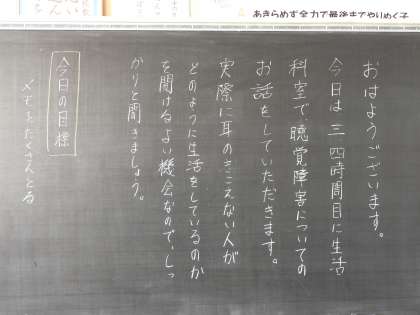 あきらめず全力で最後までやりぬく子
おはようございます。
今日は三、四時間目に生活
科室で、聴覚障害についての
お話をしていただきます。
実際に耳のきこえない人が
どのように生活をしているのか
を聞けるよい機会なので、しっ
かりと聞きましょう。
今日の目標
メモをたくさんとる